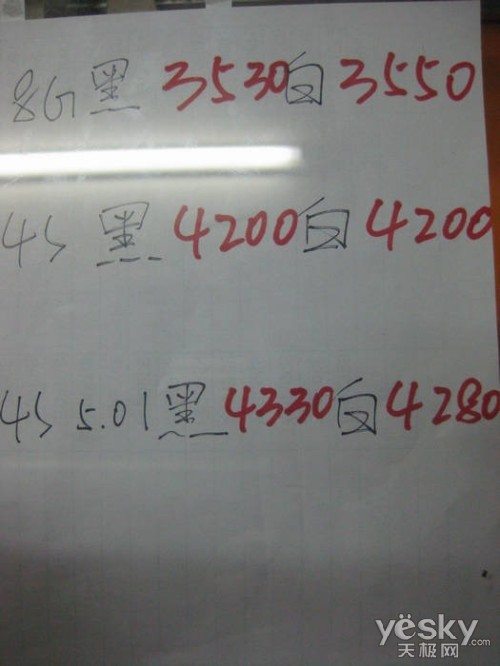 8G 黑 3530 白 3550
4S 黑 4200 白 4200
4S 5.01 黑 4330 白 4280
yësky.com
天极网